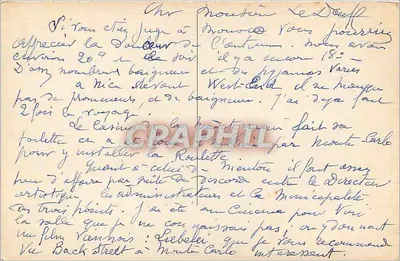 Cher Monsieur Le Deuff
Si vous étiez jugé à Monaco vous pourriez
apprécier la Douceur de l'automne. Nous avons
environ 20° le soir il y a encore 18°
D'assez nombreux baigneurs et des pyjamas variés
à Nice devant West-End il ne manque
pas de promeneurs, et de baigneurs. J'ai déjà fait
2 fois le voyage
Le Casino de la fait sa
toilette en a par Monte-Carlo
pour y installer la Roulette.
Quant à celui de Menton, il fait assez
peu d'affaires par suite du désaccord entre le Directeur
artistique les administrateurs et la Municipalité
J'ai été au Cinéma pour voir
la salle que je ne connaissais pas, on y donnait
un film viennois : Liebelei que je vous recommande
Vu Back Street à Monte Carlo intéressant.
GRAPHIL